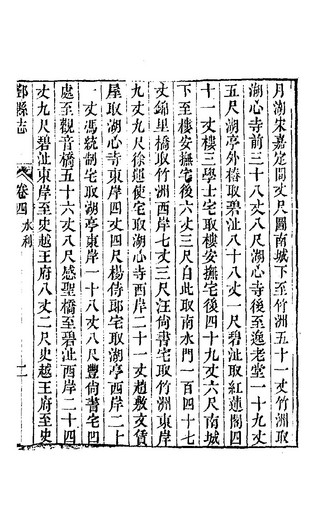 月湖宋嘉定間丈尺圖南城下至竹洲五十一丈竹洲取
湖心寺前三十八丈八尺湖心寺後至逸老堂一十九丈
五尺湖亭外椿取碧沚八十八丈一尺碧沚取紅蓮閣四
十一丈樓三學士宅取樓安撫宅後四十九丈六尺南城
下至樓安撫宅後六丈三尺白此取南水門一百四十七
丈錦里橋取竹洲西岸七丈三尺汪尙書宅取竹洲東岸
九丈九尺徐運使宅取湖心寺西岸二十一丈趙敷文賃
屋取湖心寺東岸四丈四尺楊侍郎宅取湖亭西岸二十
一丈馮統制宅取湖亭東岸一十八丈八尺豐尙書宅凹
處至觀音橋五十六丈八尺感聖橋至碧沚西岸二十四
丈九尺碧沚東岸至史越王府八丈二尺史越王府至史
鄞縣志
卷四
水利
二